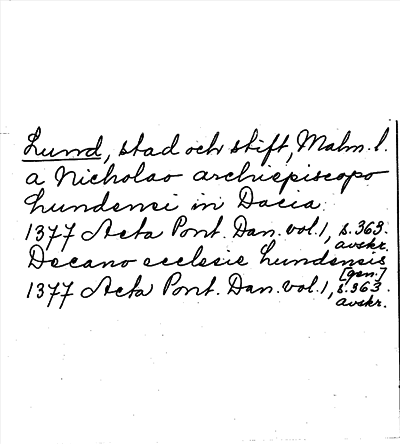 Lund, stad och stift, Malm. l.
a Nicholao archiepiscopo
Lundensi in Dacia
1377 Acta Pont. Dan. vol. 1, s. 363.
avskr.
Decano ecclesie Lundensis
[gen.]
1377 Acta Pont. Dan. vol. 1, s. 363.
avskr.